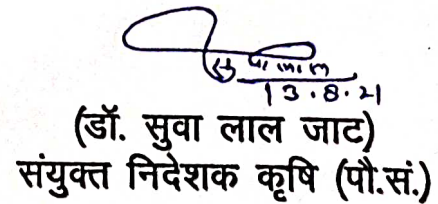 सुवा लाल
13.8.21
(डॉ. सुवा लाल जाट)
संयुक्त निदेशक कृषि (पौ.सं.)